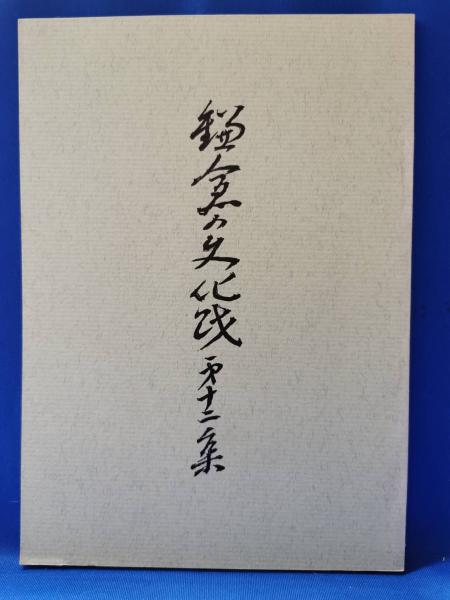 鎌倉の文化財第十二集